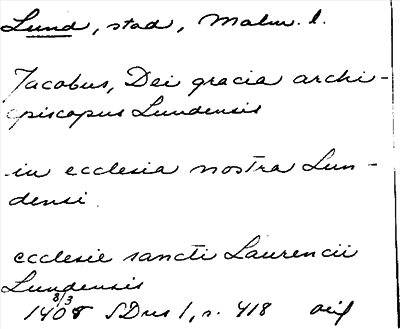 Lund, stad, Malm. l.
Jacobus, Dei gracia archi-
episcopus Lundensis
in ecclesia nostra Lun-
densi.
ecclesie sancti Laurencii
Lundensis
8/3
1408 SDns 1, s. 418 orig